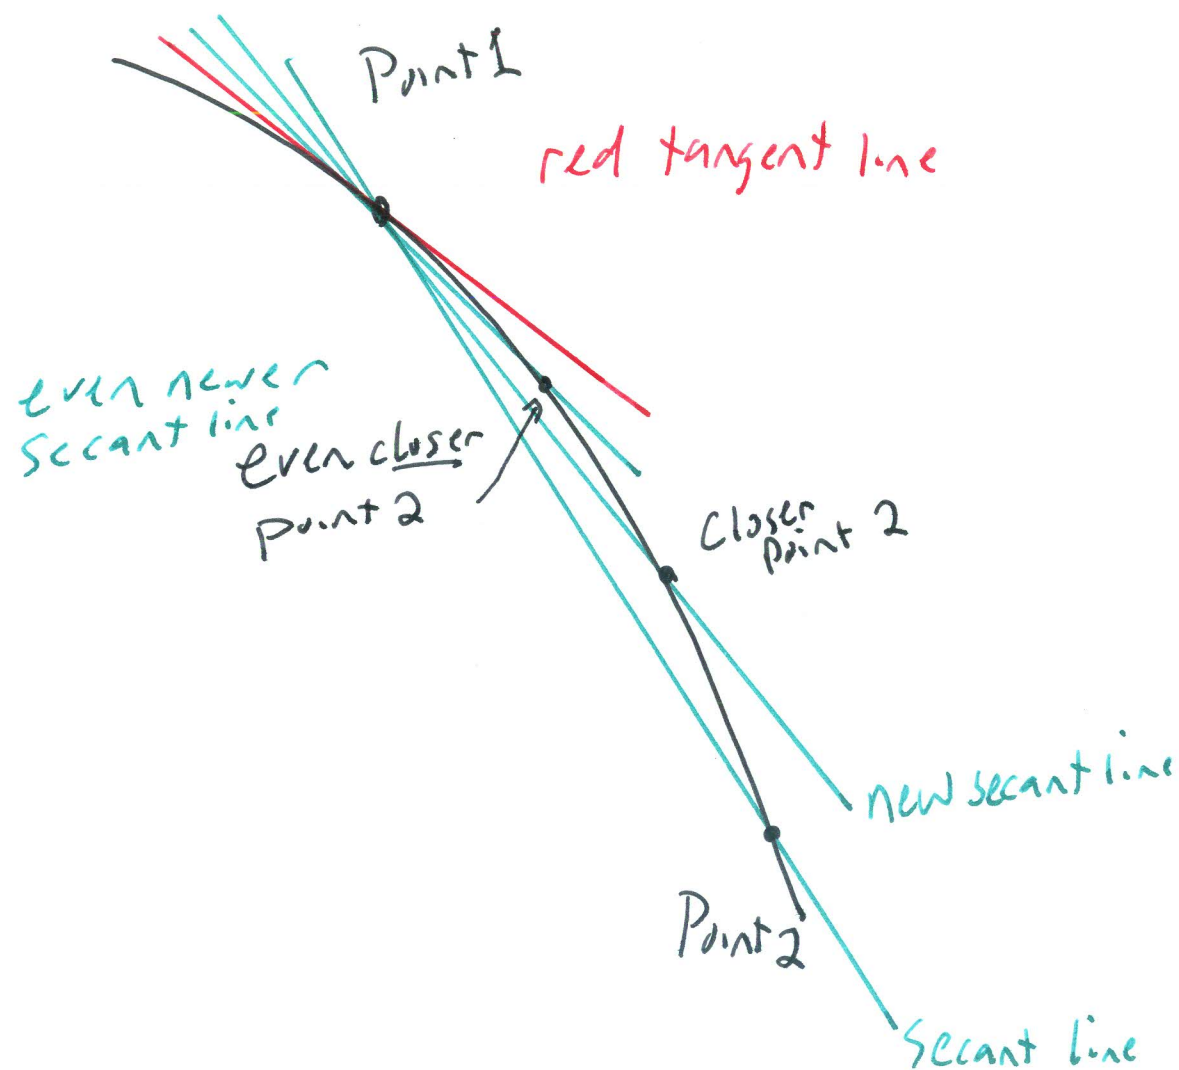 Point 1
red tangent line
even newer
secant line
even closer
point 2
Closer
point 2
new secant line
Point 2
Secant line